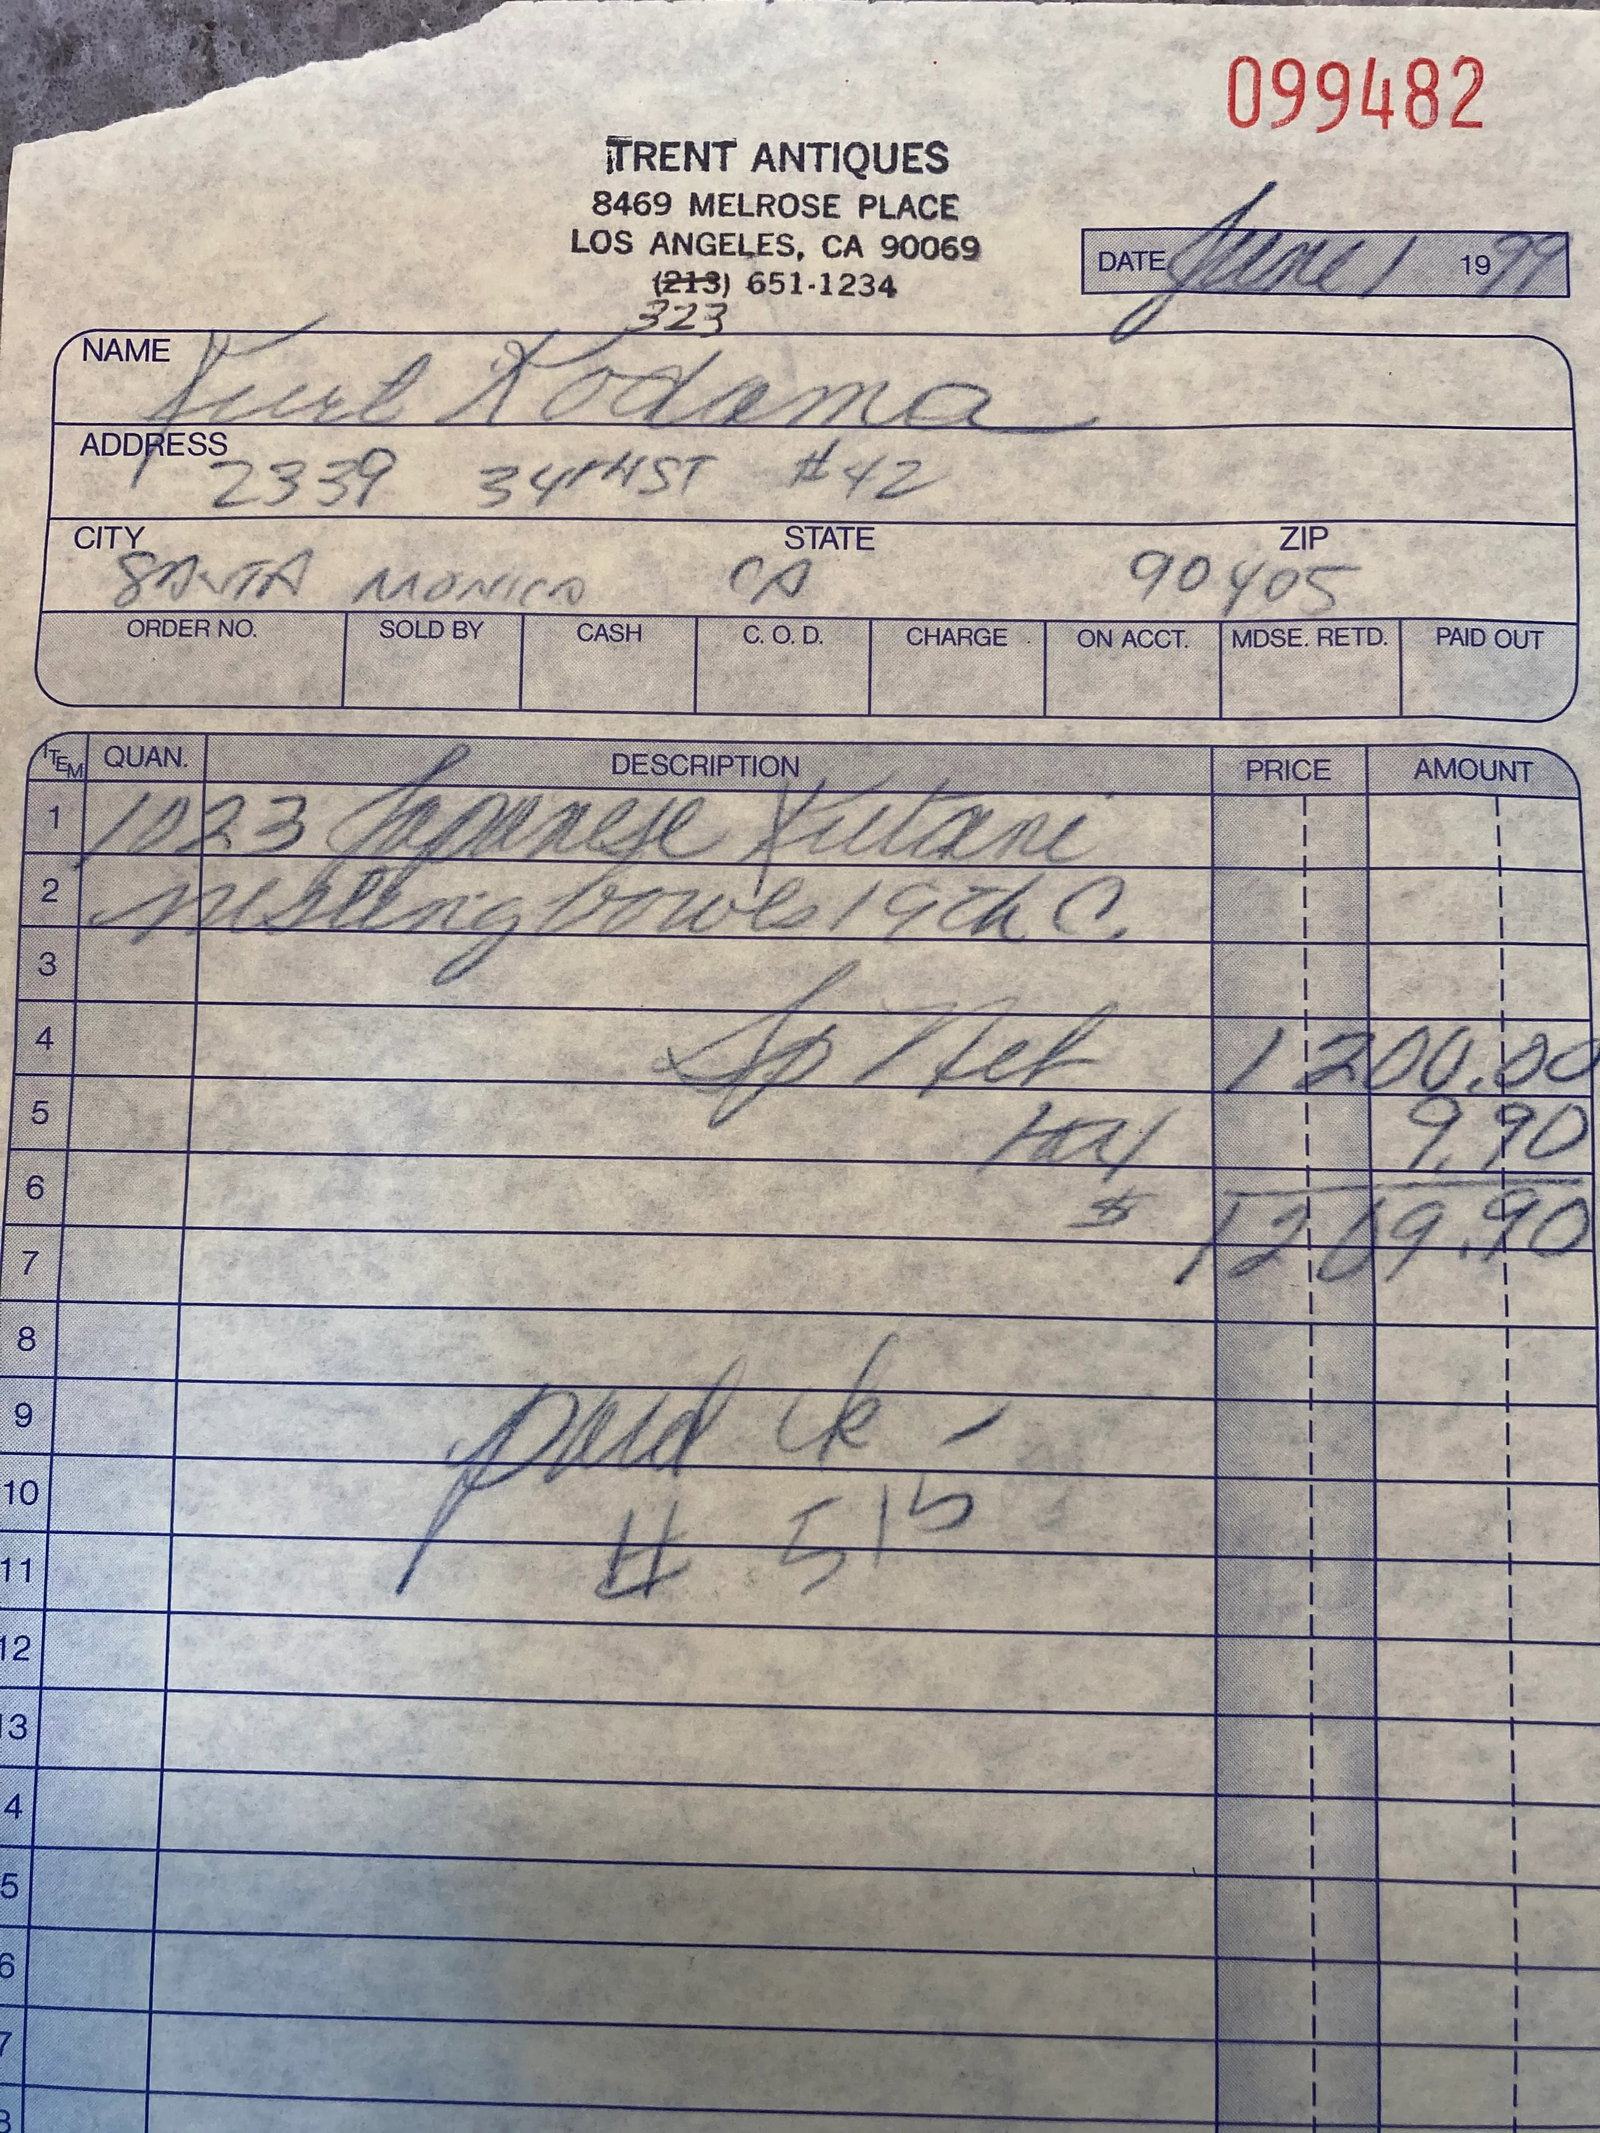 099482
TRENT ANTIQUES
8469 MELROSE PLACE
LOS ANGELES, CA 90069
(213) 651-1234
323
DATE June 1 1999
NAME Kurt Kodama
ADDRESS 2339 34TH ST #42
CITY SANTA MONICA STATE CA ZIP 90405
ORDER NO. SOLD BY CASH C. O. D. CHARGE ON ACCT. MDSE. RETD. PAID OUT
ITEM QUAN. DESCRIPTION PRICE AMOUNT
1 1023 Japanese Kutani
2 nesting bowls 19th C.
3
4 Sp Net 1200.00
5 tax 9.90
6 $ 1209.90
7
8
9 paid ck -
10 # 515
11
12
13
4
5
6
7
8